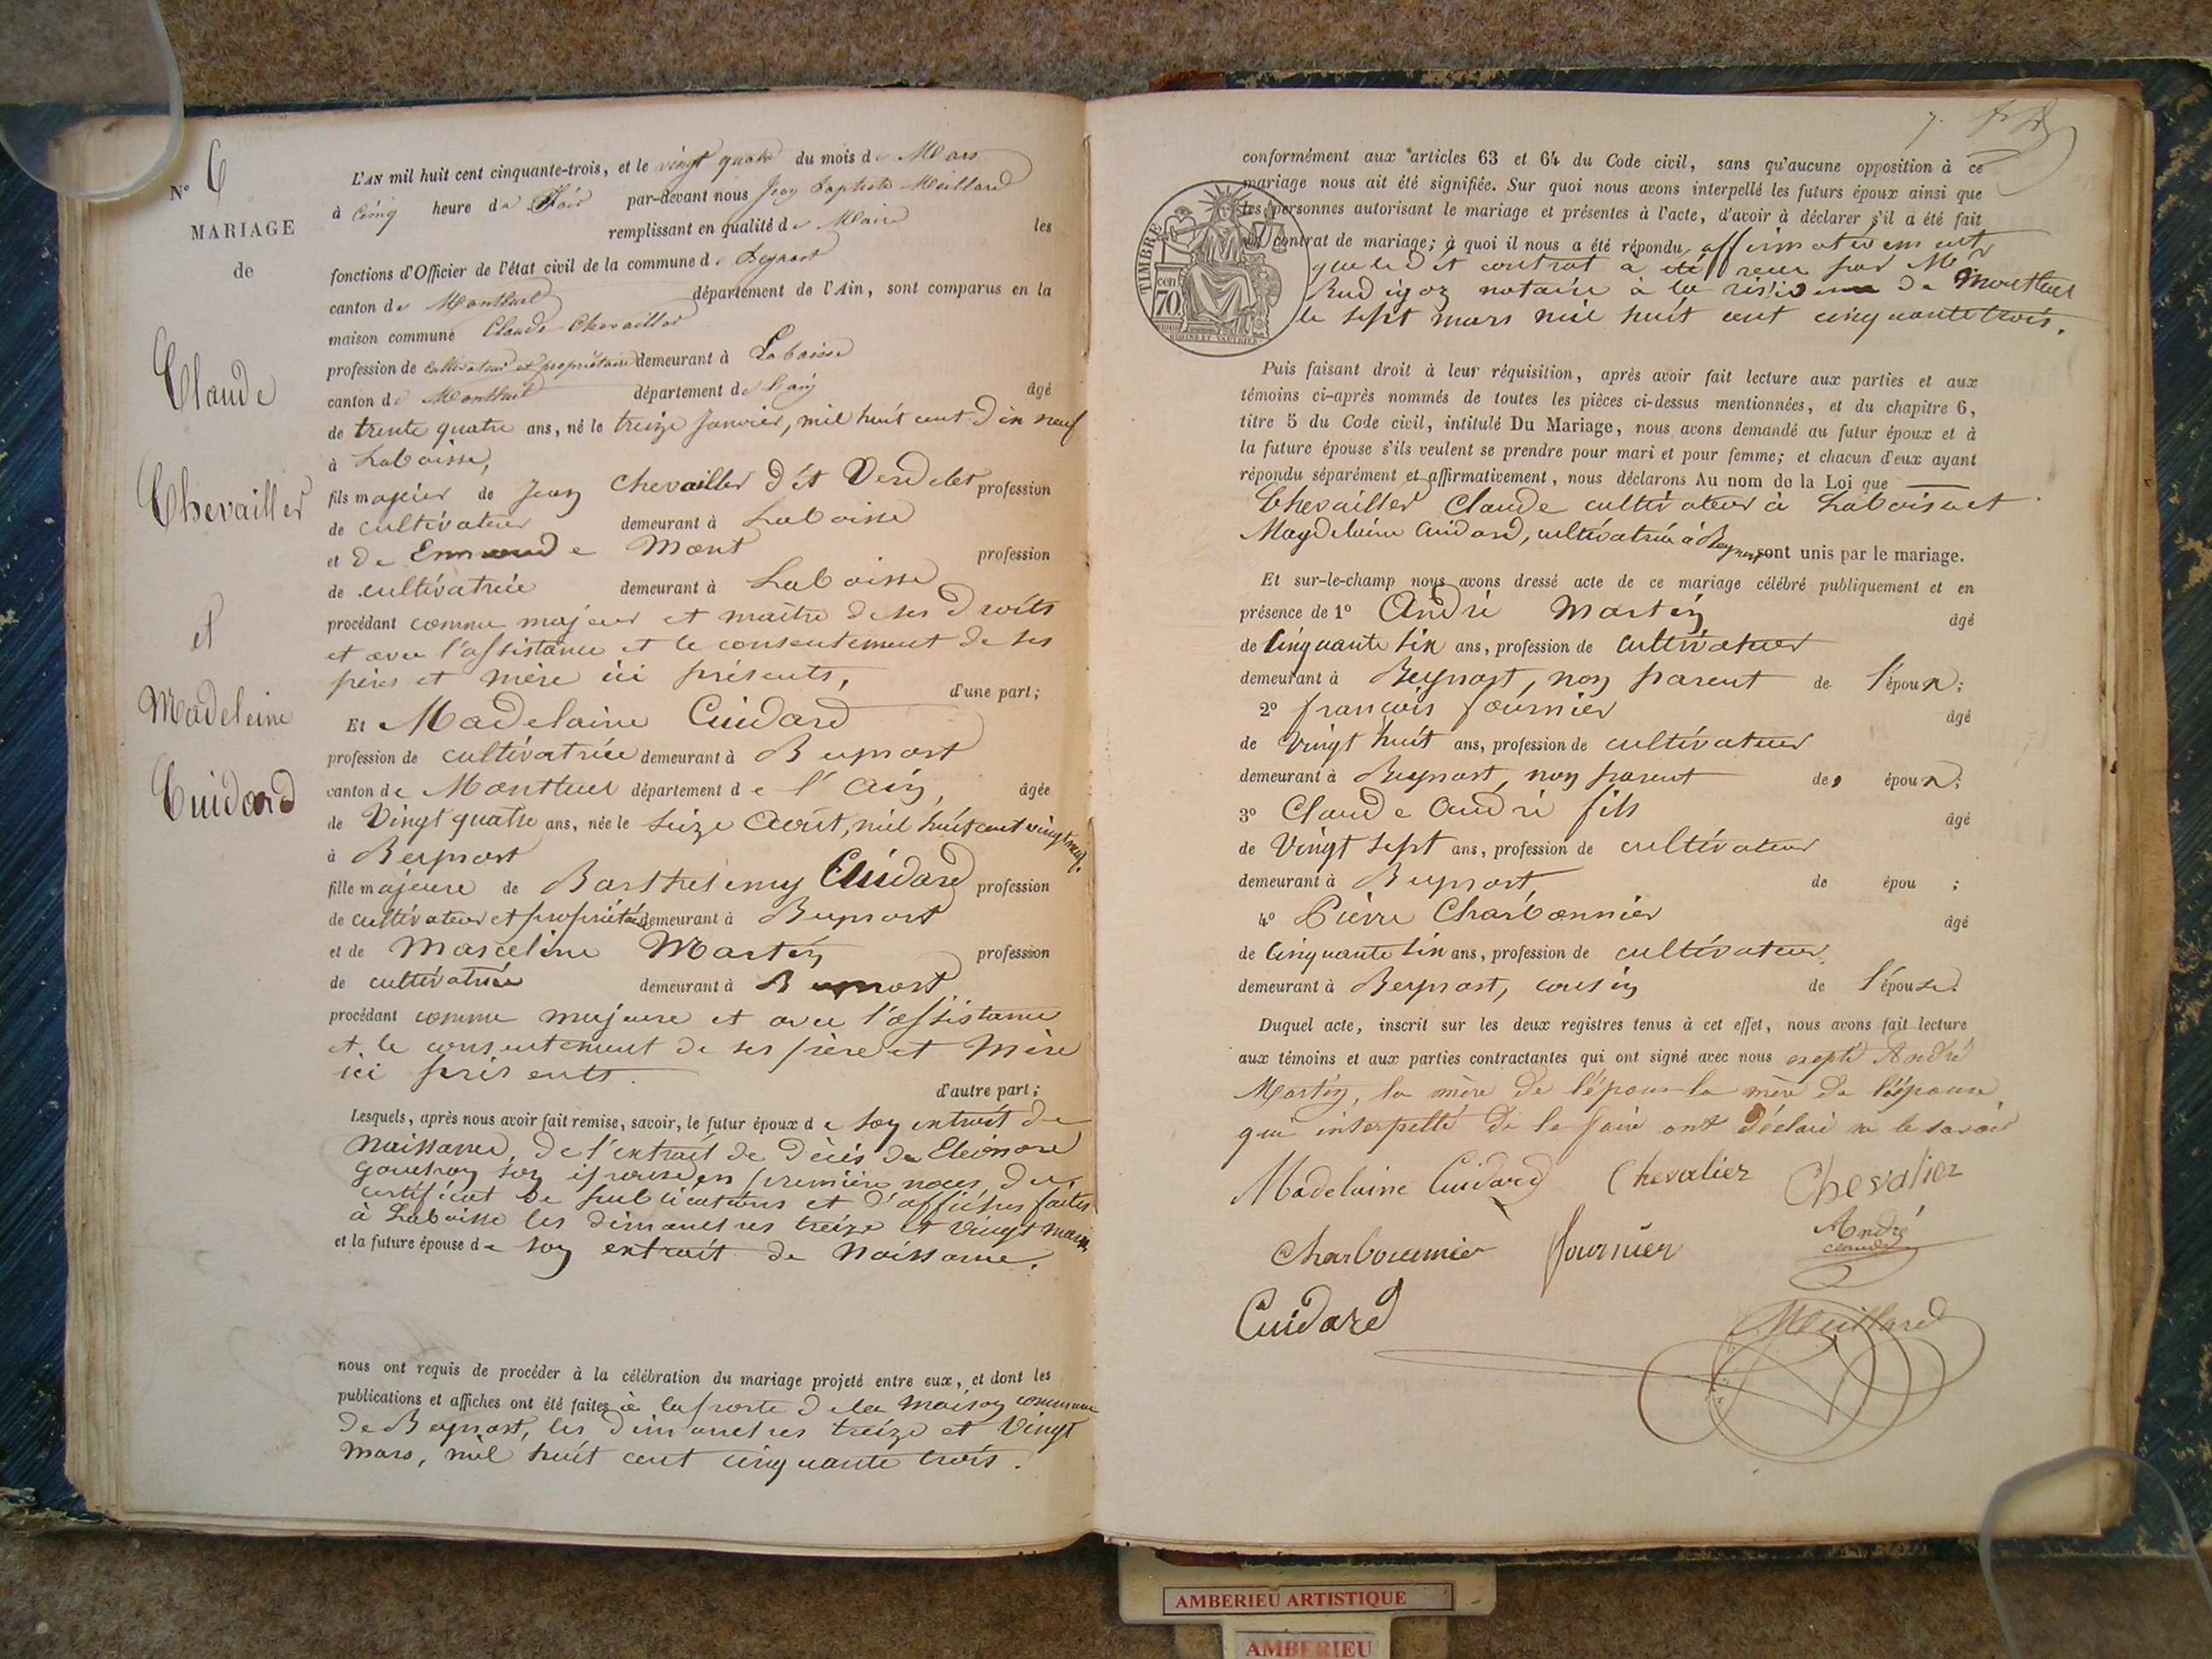 N° 6
MARIAGE
de
Claude
Chevailler
et
Madeleine
Cuidard
L'AN mil huit cent cinquante-trois, et le vingt quatre du mois de Mars
à cinq heure de Soir par-devant nous Jean Baptiste Meillard
remplissant en qualité de Maire les
fonctions d'Officier de l'état civil de la commune de Beynost
canton de Montluel département de l'Ain, sont comparus en la
maison commune Claude Chevailler
profession de cultivateur et propriétaire demeurant à Laboisse
canton de Montluel département de l'ain âgé
de trente quatre ans, né le treize Janvier, mil huit cent dix neuf
à Laboisse,
fils majeur de Jean Chevailler dit Verdelet profession
de cultivateur demeurant à Laboisse
et de Mont profession
de cultivatrice demeurant à Laboisse
procédant comme majeur et maître de ses droits
et avec l'assistance et le consentement de ses
pères et mère ici présents, d'une part;
Et Madelaine Cuidard
profession de cultivatrice demeurant à Beynost
canton de Montluel département de l'ain, âgée
de Vingt quatre ans, née le seize Août, mil huit cent vingt neuf.
à Beynost
fille majeure de Barthelemy Cuidard profession
de cultivateur et propriétaire demeurant à Beynost
et de Marceline Martin profession
de cultivatrice demeurant à Beynost
procédant comme majeure et avec l'assistance
et le consentement de ses père et Mère
ici présents. d'autre part;
Lesquels, après nous avoir fait remise, savoir, le futur époux de son extrait de
Naissance, de l'extrait de décès de Eléonore
son épouse en première noces, du
certificat de publications et d'affiches faites
à Laboisse les dimanches treize et vingt mars
et la future épouse de son extrait de Naissance.
nous ont requis de procéder à la célébration du mariage projeté entre eux, et dont les
publications et affiches ont été faites à la porte de la maison commune
de Beynost, les dimanches treize et Vingt
mars, mil huit cent cinquante trois.
7.
conformément aux articles 63 et 64 du Code civil, sans qu'aucune opposition à ce
mariage nous ait été signifiée. Sur quoi nous avons interpellé les futurs époux ainsi que
les personnes autorisant le mariage et présentes à l'acte, d'avoir à déclarer s'il a été fait
un contrat de mariage; à quoi il nous a été répondu affirmativement
que le dit contrat a été reçu par Mr
Rudigoz notaire à la résidence de Montluel
le sept mars mil huit cent cinquante trois.
TIMBRE
70 cen
Puis faisant droit à leur réquisition, après avoir fait lecture aux parties et aux
témoins ci-après nommés de toutes les pièces ci-dessus mentionnées, et du chapitre 6,
titre 5 du Code civil, intitulé Du Mariage, nous avons demandé au futur époux et à
la future épouse s'ils veulent se prendre pour mari et pour femme; et chacun d'eux ayant
répondu séparément et affirmativement, nous déclarons Au nom de la Loi que
Chevailler Claude cultivateur à Laboisse et
Magdelaine Cuidard, cultivatrice à Beynost sont unis par le mariage.
Et sur-le-champ nous avons dressé acte de ce mariage célébré publiquement et en
présence de 1° André Martin âgé
de Cinquante six ans, profession de cultivateur
demeurant à Beynost, non parent de l'époux;
2° françois fournier âgé
de Vingt huit ans, profession de cultivateur
demeurant à Beynost, non parent de époux;
3° Claude André fils âgé
de Vingt sept ans, profession de cultivateur
demeurant à Beynost, de épou ;
4° Pierre Charbonnier âgé
de Cinquante six ans, profession de cultivateur
demeurant à Beynost, cousin de l'épouse.
Duquel acte, inscrit sur les deux registres tenus à cet effet, nous avons fait lecture
aux témoins et aux parties contractantes qui ont signé avec nous excepté André
Martin, la mère de l'époux la mère de l'épouse
qui interpellé de le faire ont déclaré ne le savoir
Madelaine Cuidard Chevalier Chevalier
Charbounnier fournier André
claude
Cuidard Meillard
AMBERIEU ARTISTIQUE
AMBERIEU